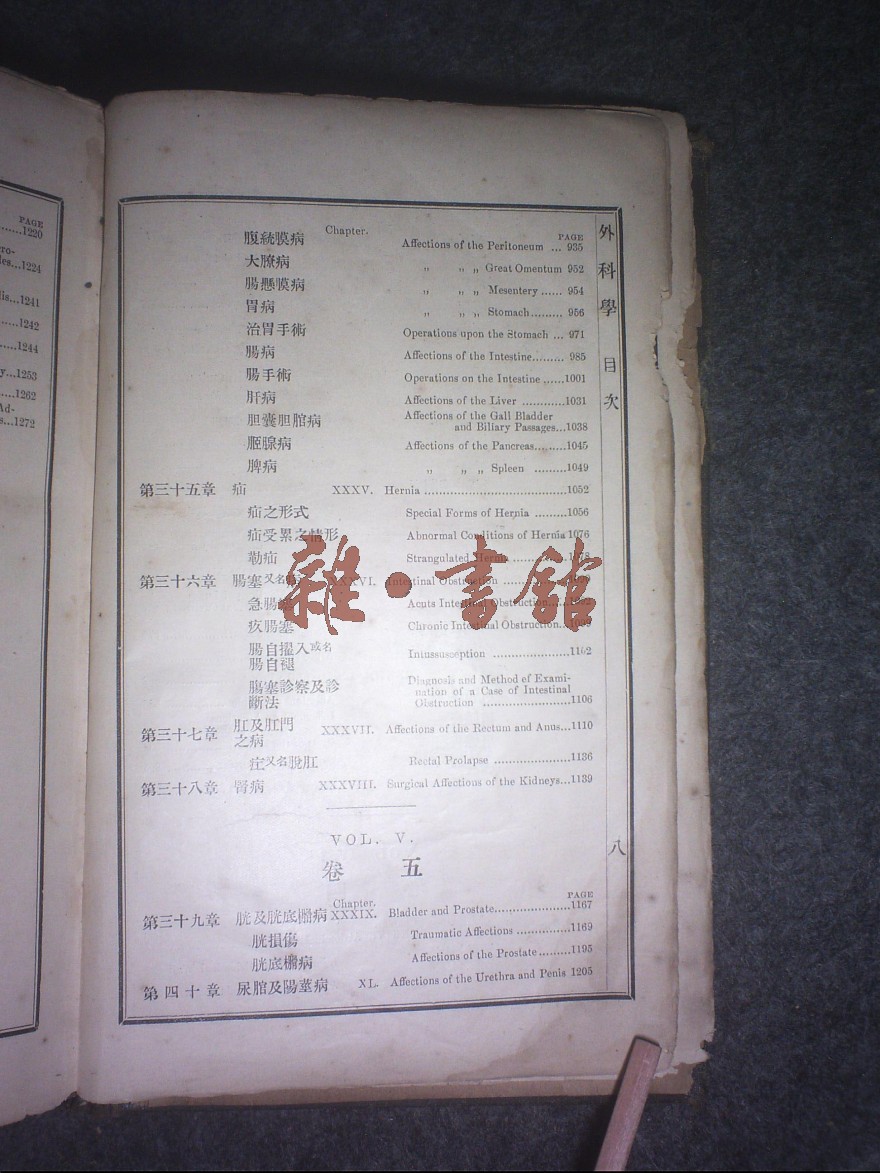 PAGE
......1220
ro-
les...1224
lis...1241
.....1242
.....1244
y...1253
....1262
Ad-
s...1272
外科學 目次
八
Chapter. PAGE
腹統膜病 Affections of the Peritoneum ... 935
大膫病 „ „ „ Great Omentum 952
腸懸膜病 „ „ „ Mesentery ...... 954
胃病 „ „ „ Stomach......... 956
治胃手術 Operations upon the Stomach ... 971
腸病 Affections of the Intestine......... 985
腸手術 Operations on the Intestine ......1001
肝病 Affections of the Liver ............1031
胆囊胆脂病 Affections of the Gall Bladder
and Biliary Passages...1038
Affections of the Pancreas.........1045
脾病 „ „ „ Spleen .........1049
第三十五章 疝 XXXV. Hernia ........................................1052
疝之形式 Special Forms of Hernia .........1056
疝受累之情形 Abnormal Conditions of Hernia 1076
勒疝 Strangulated Hernia
第三十六章 腸塞又名 XXXVI. Intestinal Obstruction
急腸塞 Acuts Intestinal Obstruction
疚腸塞 Chronic Intestinal Obstruction
腸自擢入或名
腸自褪 Intussusception
腸塞診察及診
斷法 Diagnosis and Method of Exami-
nation of a Case of Intestinal
Obstruction .......................1106
第三十七章 肛及肛門
之病 XXXVII. Affections of the Rectum and Anus...1110
又名脫肛 Rectal Prolapse ....................1136
第三十八章 腎病 XXXVIII. Surgical Affections of the Kidneys...1139
VOL. V.
卷 五
Chapter. PAGE
第三十九章 胱及胱底 病 XXXIX. Bladder and Prostate......................1167
胱損傷 Traumatic Affections ...............1169
胱底 病 Affections of the Prostate.........1195
第四十章 尿 及陽莖病 XL. Affections of the Urethra and Penis 1205
雜·書館